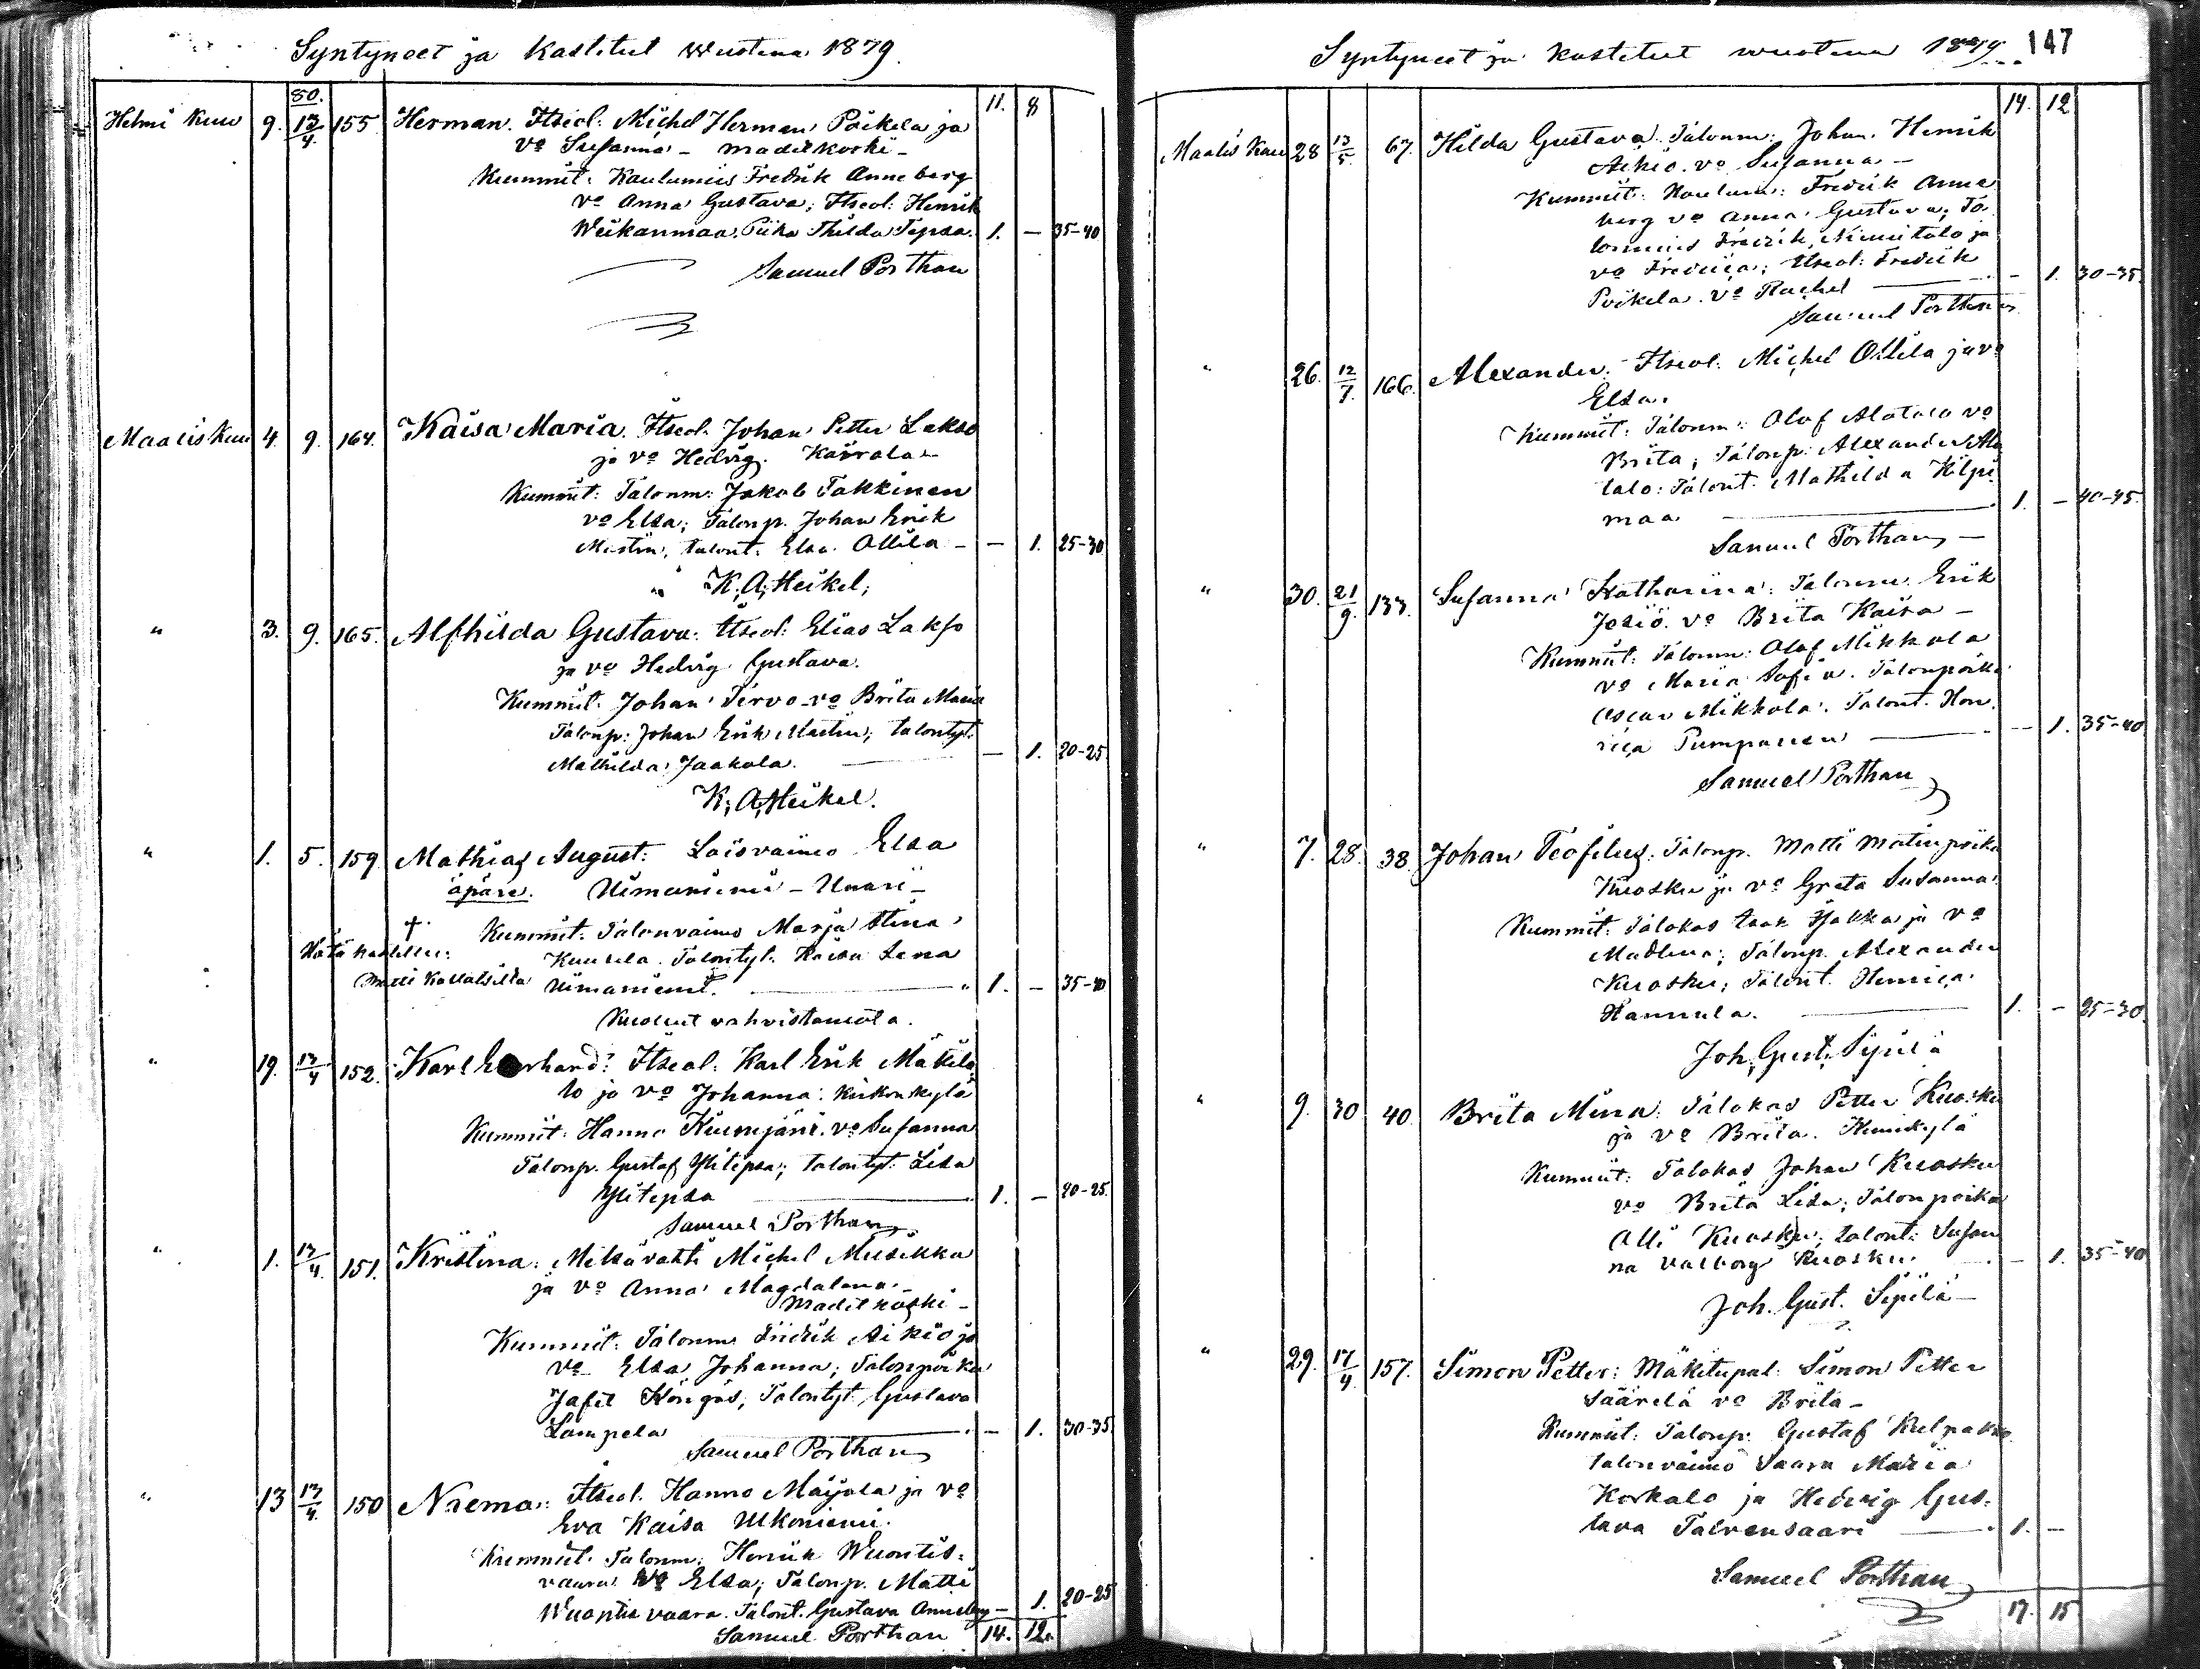 Syntyneet ja Kastetut Wuotena 1879.
80. 11. 8
Helmi Kuu 9. 13/4. 155 Herman. Itseol: Michel Herman Poikela ja
vo Susanna - Madetkoski -
Kummit: Kaulumies Fredrik Anneberg
vo Anna Gustava; Itseol: Henrik
Weikanmaa. Piika Thilda Tepsa. 1. - 35-40
Samuel Porthan
Maalis Kuu 4. 9. 164. Kaisa Maria. Itseol. Johan Petter Lakso
ja vo Hedvig. Kaarala -
Kummit: Talonm: Jakob Takkinen
vo Elsa; Talonp. Johan Erik
Martin, talont. Elsa Ollila - - 1. 25-30
K; A; Heikel;
" 3. 9. 165. Alfhilda Gustava: Itseol: Elias Lakso
ja vo Hedvig Gustava.
Kummit: Johan Tervo vo Brita Maria
Talonp: Johan Erik Martin; talontyt.
Mathilda Jaakola. - 1. 20-25
K; A; Heikel.
" 1. 5. 159 Mathias August: Loisvaimo Elsa
äpärä. Uimaniemi - Unari -
† Kummit: Talonvaimo Marja Stina
Hätä kastettu: Kuusela. Talontyt. Kaisa Lena
Matti Kallatsilta Uimaniemi. " 1. - 35-40
Kuollut vahvistamata.
" 19. 13/4 152. Karl Eerhard: Itseol: Karl Erik Mäkila
lo ja vo Johanna: Kirkonkylä
Kummit: Hanno Kiurujärvi. vo Susanna
Talonp. Gustaf Ylitepsa; talontyt. Lisa
Ylitepsa 1. - 20-25.
Samuel Porthan
" 1. 13/4. 151. Kristina: Metsävahti Michel Musikka
ja vo Anna Magdalena.
Madetkoski -
Kummit: Talonm Fridrik Aikio ja
vo Elsa Johanna; Talonpoika
Jafet Köngäs, Talontyt. Gustava
Lampela - 1. 30-35.
Samuel Porthan
" 13 13/4. 150 Naema: Itseol. Hanno Maijala ja vo
Eva Kaisa Ukoniemi.
Kummit: Talonm: Henrik Wuontis=
vaara vo Elsa; Talonp. Matti
Wuontis vaara. Talont. Gustava Anneberg - 1. 20-25
Samuel Porthan 14. 12.
Syntyneet ja Kastetut wuotena 1879. 147
14. 12
Maalis Kuu 28 13/5. 67. Hilda Gustava. Talonm: Johan Henrik
Aikio. vo Susanna -
Kummit: Kaulum: Fredrik Anne
berg vo Anna Gustava; Ta
lonmies Fredrik Niemitalo ja
vo Fredrica; Itseol: Fredrik
Poikela. vo Rachel - 1. 30-35.
Samuel Porthan
" 26. 12/7. 166. Alexander. Itseol: Michel Ollila ja vo
Elsa.
Kummit: Talonm: Olof Alatalo vo
Brita; Talonp. Alexander Ala
talo: Talont. Mathilda Kilpi
maa 1. - 40-45.
Samuel Porthan -
" 30. 21/9. 133. Susanna Katharina: Talonm. Erik
Jesiö. vo Brita Kaisa -
Kummit: Talonm: Olof Mikkola
vo Maria Sofia. Talonpoika
Oscar Mikkola. Talont. Hen
rica Pumpanen - 1. 35-40
Samuel Porthan
" 7. 28. 38. Johan Teofilus: Talonp. Matti Matinpoika
Kuosku ja vo Greta Susanna.
Kummit: Talokas Isak Hakka ja vo
Madlena; Talonp. Alexander
Kuosku; Talont. Henrica
Hannula. 1. - 25-30
Joh; Gust; Sipilä
" 9. 30 40. Brita Mina: Talokas Petter Kuosku
ja vo Brita. Kemikylä
Kummit: Talokas Johan Kuosku
vo Brita Lisa; Talonpoika
Olli Kuosku; talont: Susan
na Valborg Kuosku. - 1. 35-40
Joh. Gust. Sipilä -
" 29. 17/4. 157. Simon Petter: Mäkitupal: Simon Petter
Säärelä vo Brita -
Kummit: Talonp: Gustaf Kulpakko
talonvaimo Saara Maria
Korkalo ja Hedvig Gus=
tava Talvensaari 1. -
Samuel Porthan
17. 15